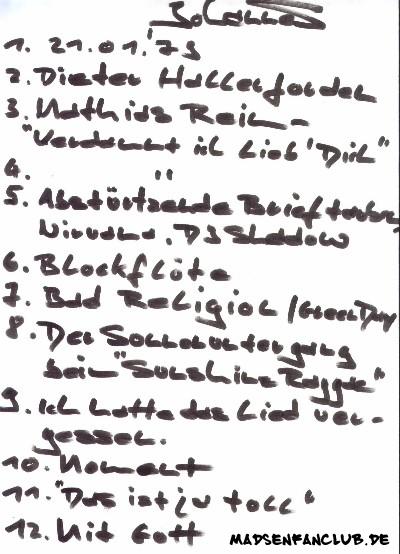 Johannes
1. 21.01.'79
2. Dieter Hallerforden
3. Mathias Reim -
"Verdammt ich lieb' Dich"
4. "
5. Abstürtzende Brieftauben,
Nirvana, DJ Shadow
6. Blockflöte
7. Bad Religion / Green Day
8. Der Sonnenuntergang
beim "Sunshine Reggae"
9. Ich hatte das Lied ver-
gessen.
10. Moment
11. "Das ist ja toll"
12. Mit Gott
MADSENFANCLUB.DE